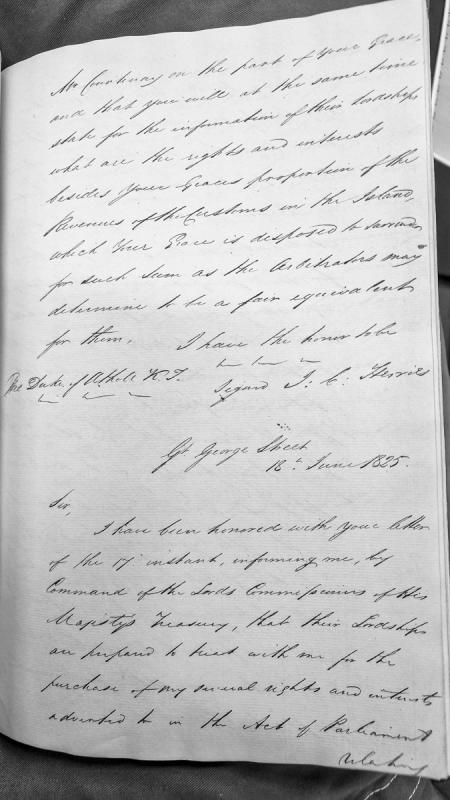 Mr Courtenay on the part of Your Grace,
and that you will at the same time
state for the information of their Lordships
what are the rights and interests
besides Your Graces proportion of the
Revenues of the Customs in the Island,
which Your Grace is disposed to surrender
for such Sum as the Arbitrators may
determine to be a fair equivalent
for them. I have the honor to be
The Duke of Atholl K.T. Signed J: C: Herries
Gt George Street
18th June 1825.
Sir,
I have been honored with your letter
of the 17th instant, informing me, by
Command of the Lords Commissioners of His
Majesty's Treasury, that their Lordships
are prepared to treat with me for the
purchase of my several rights and interests
adverted to in the Act of Parliament
relating